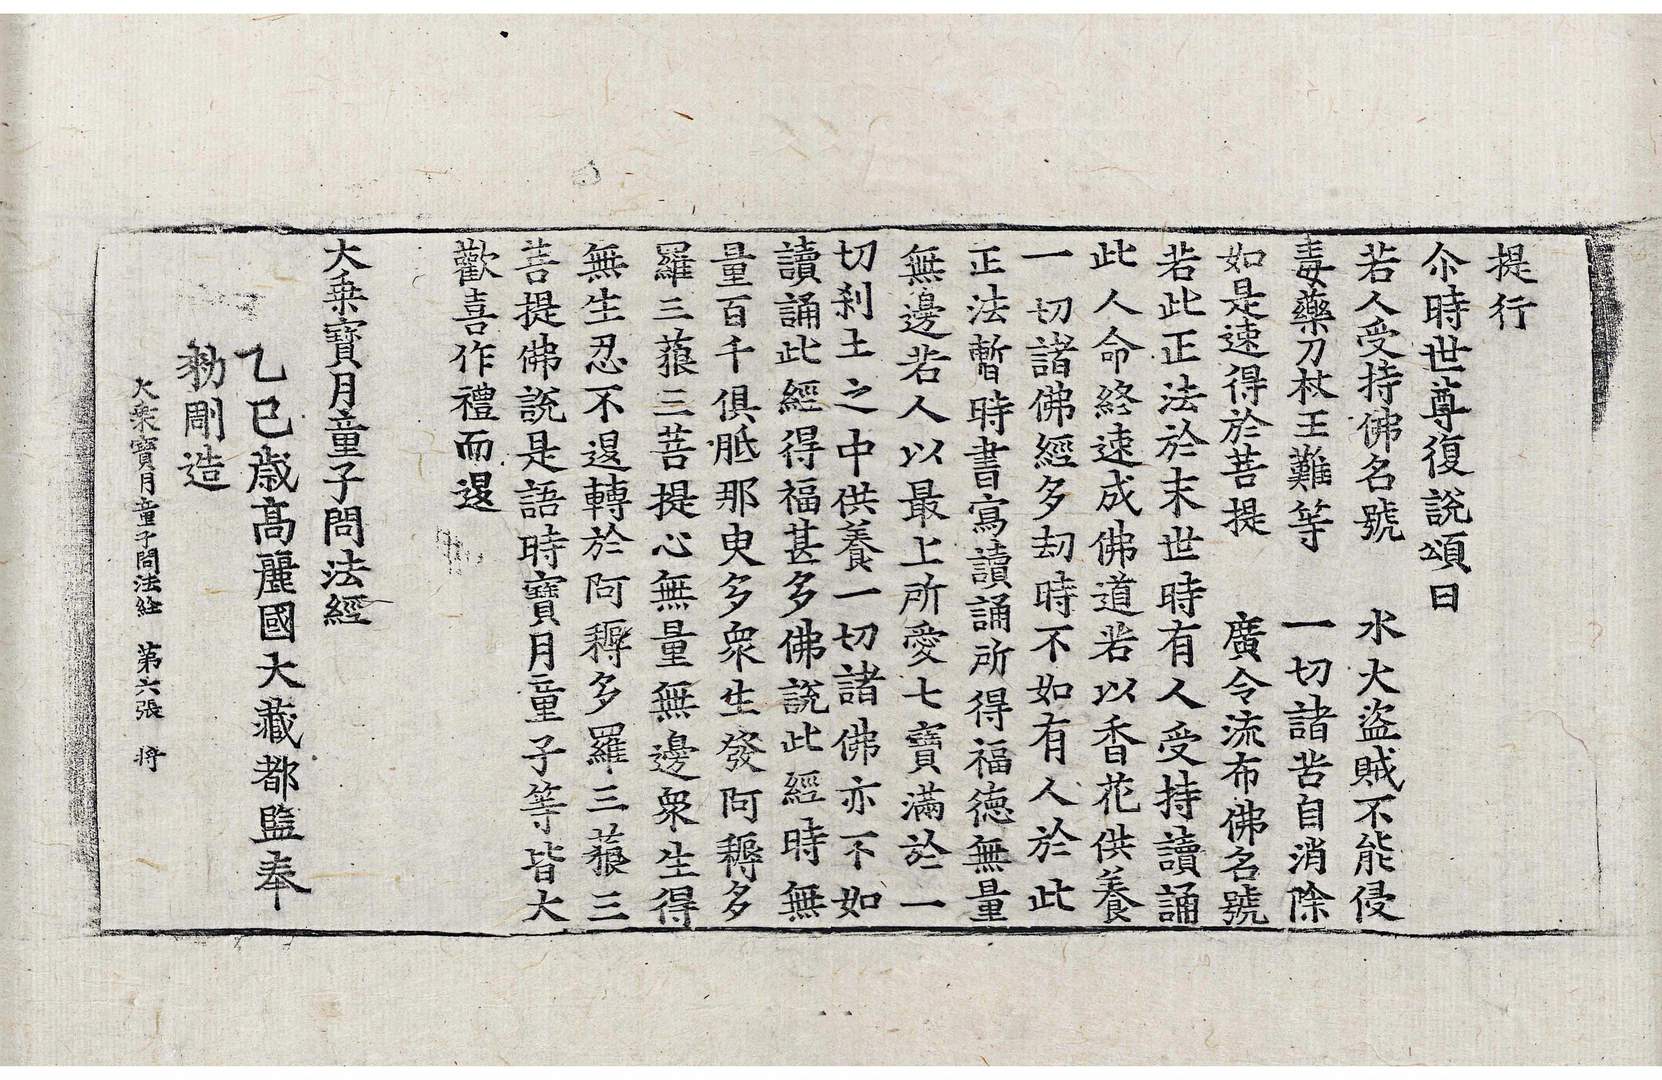 提行
尒時世尊復說頌曰
若人受持佛名號　水火盜賊不能侵
毒藥刀杖王難等　一切諸苦自消除
如是速得於菩提　廣令流布佛名號
若此正法於末世時有人受持讀誦
此人命終速成佛道若以香花供養
一切諸佛經多劫時不如有人於此
正法暫時書寫讀誦所得福德無量
無邊若人以最上所愛七寶滿於一
切刹土之中供養一切諸佛亦不如
讀誦此經得福甚多佛說此經時無
量百千俱胝那庾多衆生發阿耨多
羅三藐三菩提心無量無邊衆生得
無生忍不退轉於阿耨多羅三藐三
菩提佛說是語時寶月童子等皆大
歡喜作禮而退
大乗寶月童子問法經
乙巳歲高麗國大藏都監奉
勑彫造
大乗寶月童子問法經　第六張　將